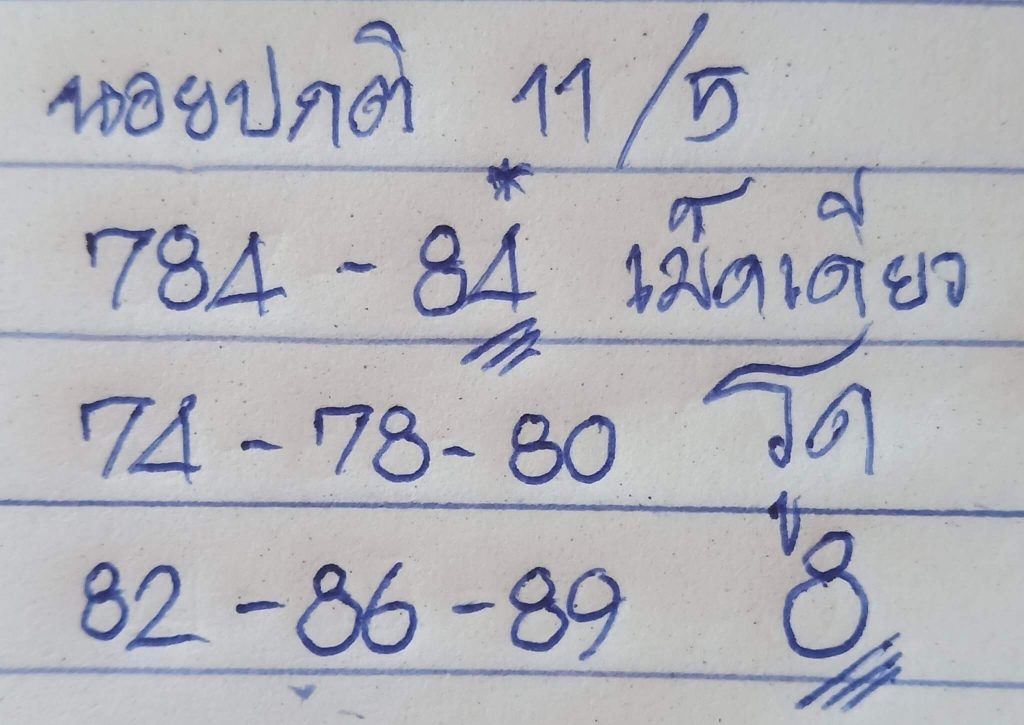 นอยปกติ 11/5
784 - 84 เม็ดเดียว
74 - 78 - 80 รูด
82 - 86 - 89 8